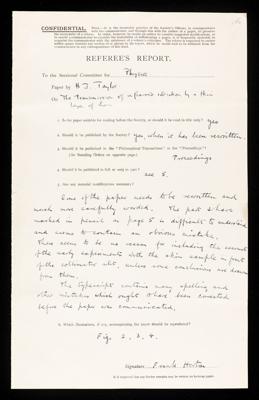 CONFIDENTIAL.
REFEREE'S REPORT.
To the Sectional Committee for Physics
Paper by H. J. Taylor
On The transmission of infrared radiation by a thin
layer of horn
1. Is the paper suitable for reading before the Society, or should it be read in title only? yes
2. Should it be published by the Society? yes, when it has been rewritten
3. Should it be published in the "Philosophical Transactions" or the "Proceedings"?
(See Standing Orders on opposite page.) Proceedings
4. Should it be published in full or only in part? see 5.
5. Are any material modifications necessary?
Some of the paper needs to be rewritten and
much more carefully worded. The part I have
marked in pencil on page 5 is difficult to understand
and seems to contain an obvious mistake.
There seems to be no reason for including the account
of the early experiments with the skin sample in front
of the collimator slit, unless some conclusions are drawn
from them.
The typescript contains many spelling and
other mistakes which ought to have been corrected
before the paper was communicated.
6. Which illustrations, if any, accompanying the paper should be reproduced?
Fig. 2. 3. 4.
Signature Frank Horton